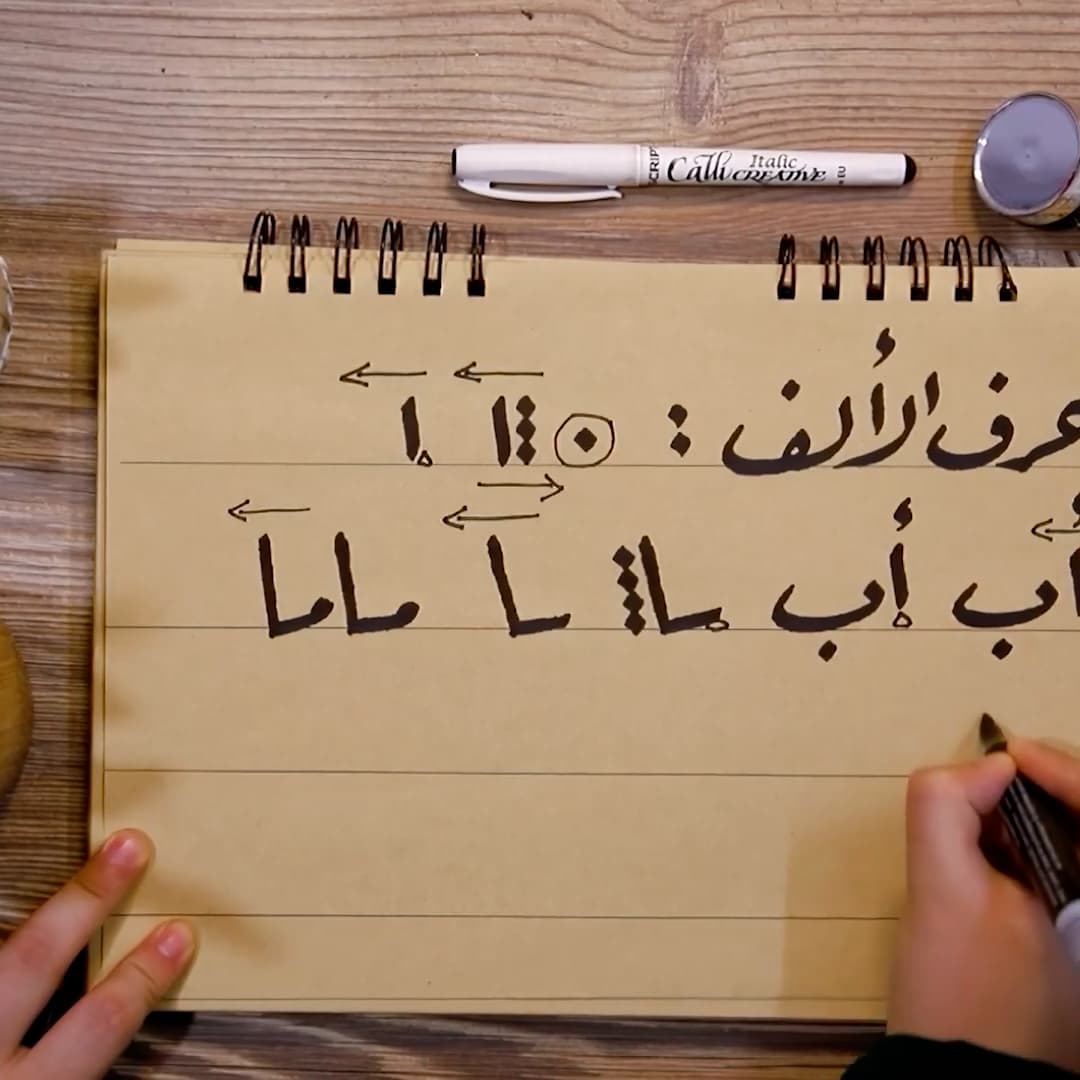 SCRIPT Calli Italic CREATIVE EU
حرف الألف : ا ا
أب أب ـا ـا ماما